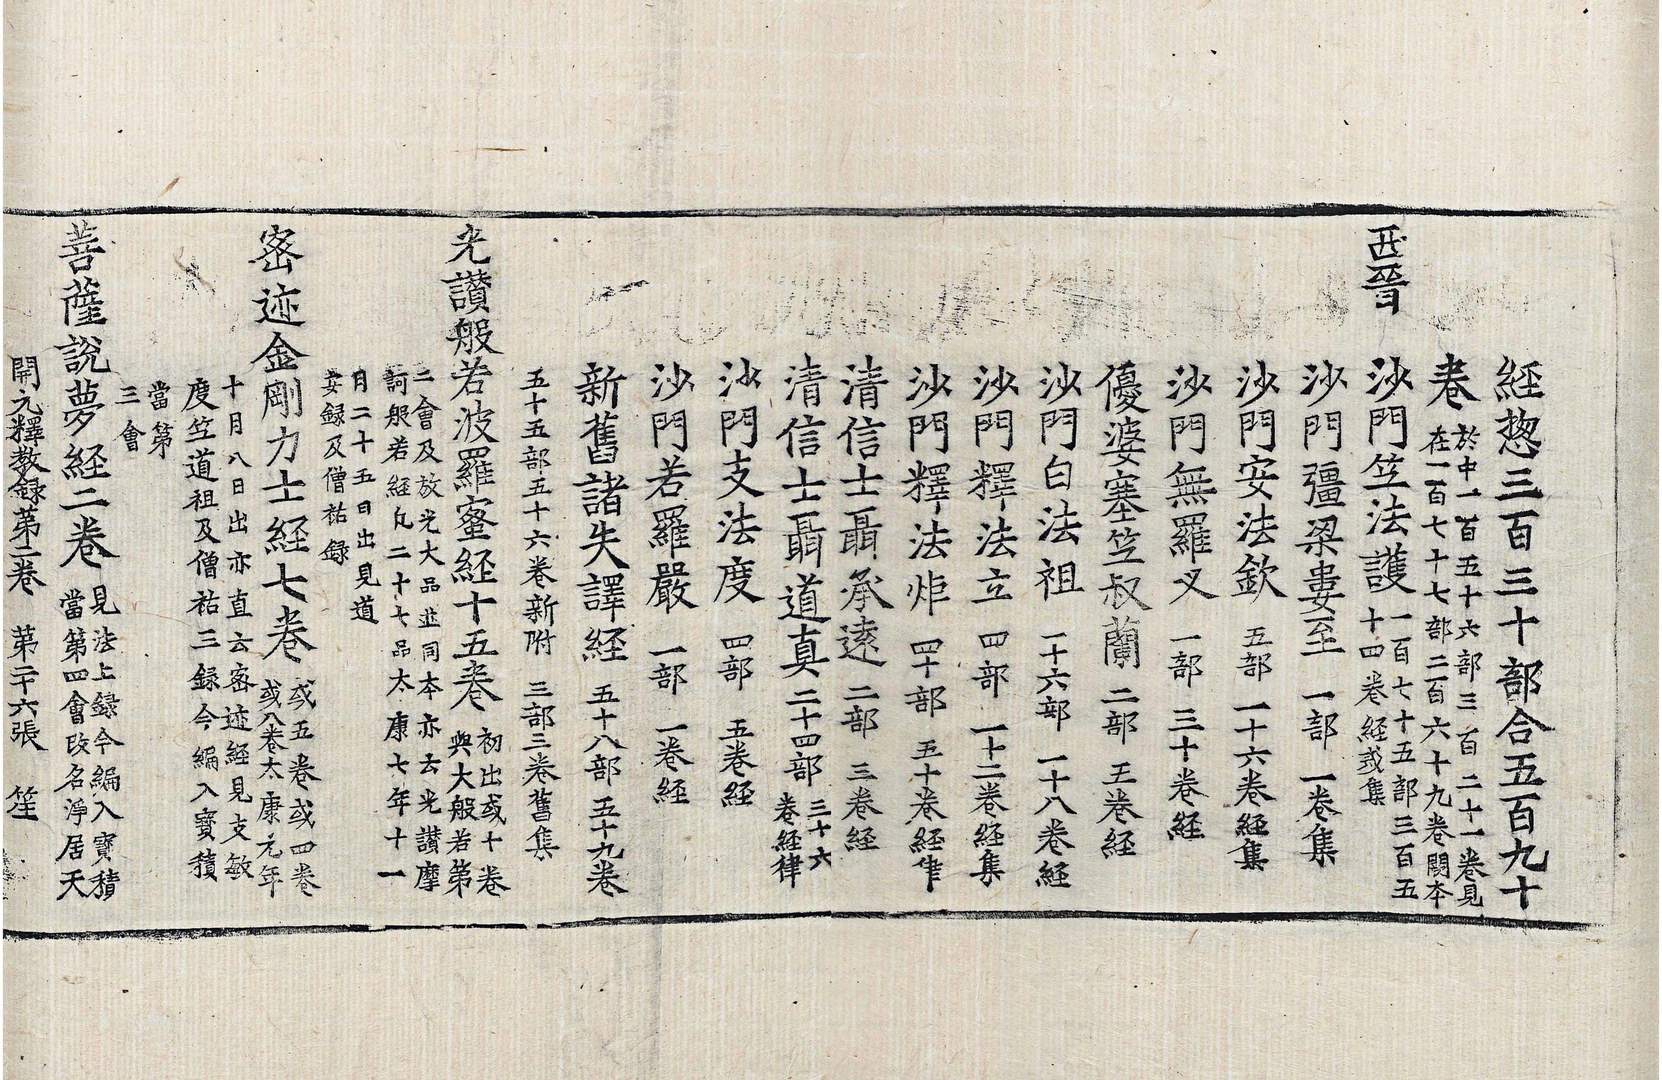 經惣三百三十部合五百九十
卷於中一百五十六部三百二十一卷見在一百七十七部二百六十九卷闕本
西晉 沙門竺法護一百七十五部三百五十四卷經或集
沙門彊梁婁至 一部 一卷集
沙門安法欽 五部 一十六卷經集
沙門無羅叉 一部 三十卷經
優婆塞竺叔蘭 二部 五卷經
沙門白法祖 一十六部 一十八卷經
沙門釋法立 四部 一十二卷經集
沙門釋法炬 四十部 五十卷經集
清信士聶承遠 二部 三卷經
清信士聶道真 二十四部 三十六卷經律
沙門支法度 四部 五卷經
沙門若羅嚴 一部 一卷經
新舊諸失譯經 五十八部 五十九卷
五十五部五十六卷新附 三部三卷舊集
光讚般若波羅蜜經十五卷 初出或十卷與大般若第
二會及放光大品並同本亦云光讚摩訶般若經凡二十七品太康七年十一
月二十五日出見道安錄及僧祐錄
密迹金剛力士經七卷 或五卷或四卷或八卷太康元年
十月八日出亦直云密迹經見支敏度竺道祖及僧祐三錄今編入寶積
當第三會
菩薩說夢經二卷 見法上錄今編入寶積當第四會改名淨居天
開元釋教録第二卷 第二十六張 笙